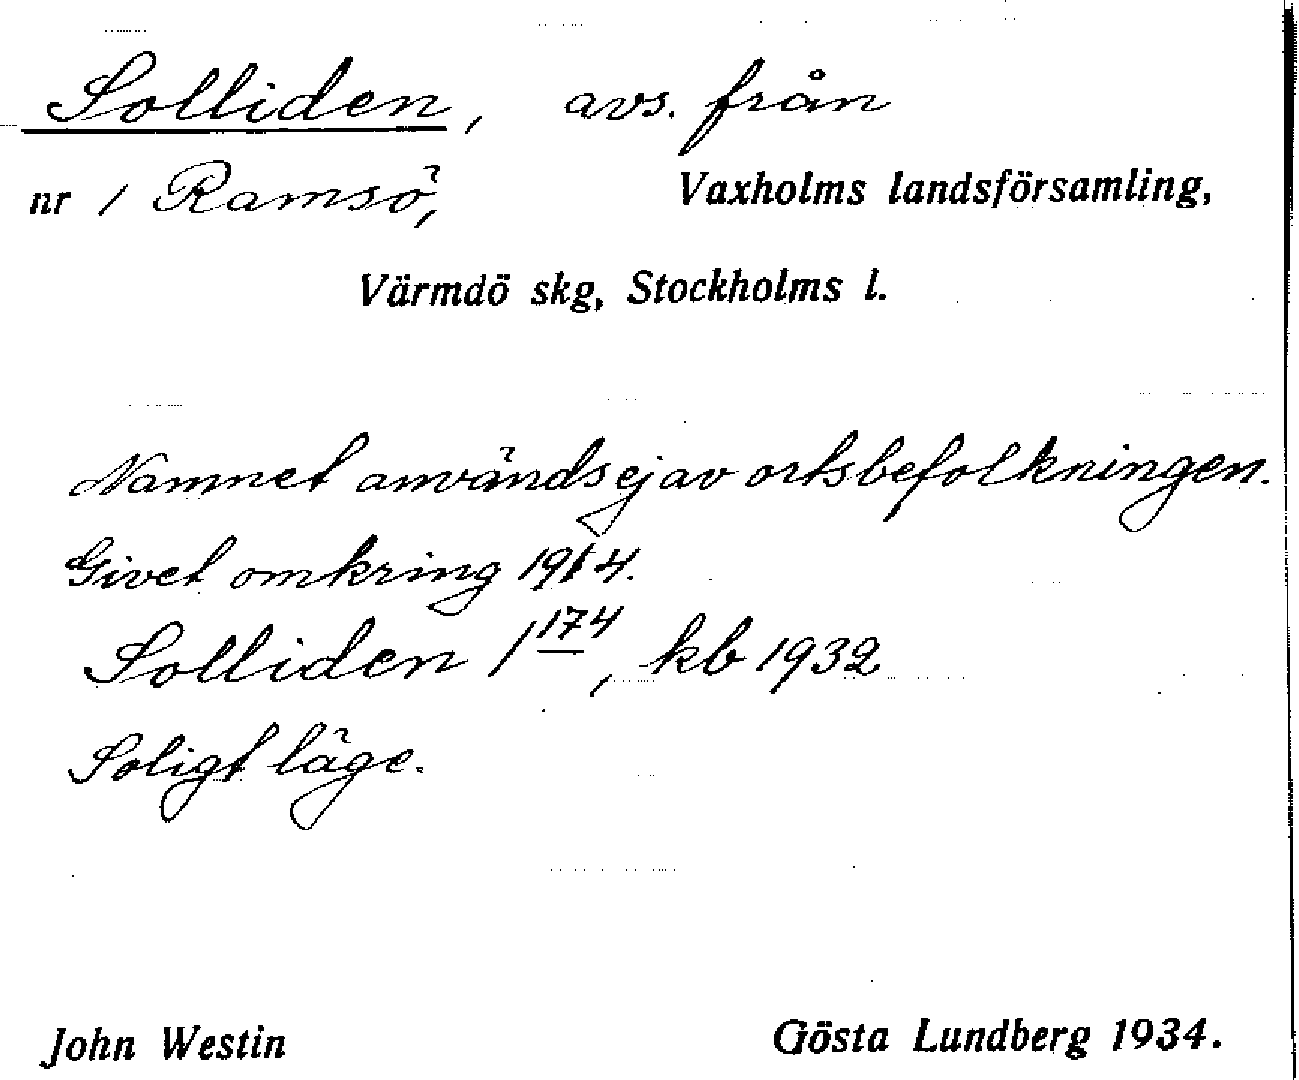 Solliden, avs. från
nr 1 Ramsö, Vaxholms landsförsamling,
Värmdö skg, Stockholms l.
Namnet användes ej av ortsbefolkningen.
Givet omkring 1914.
Solliden 1174, kb 1932
Soligt läge.
John Westin Gösta Lundberg 1934.